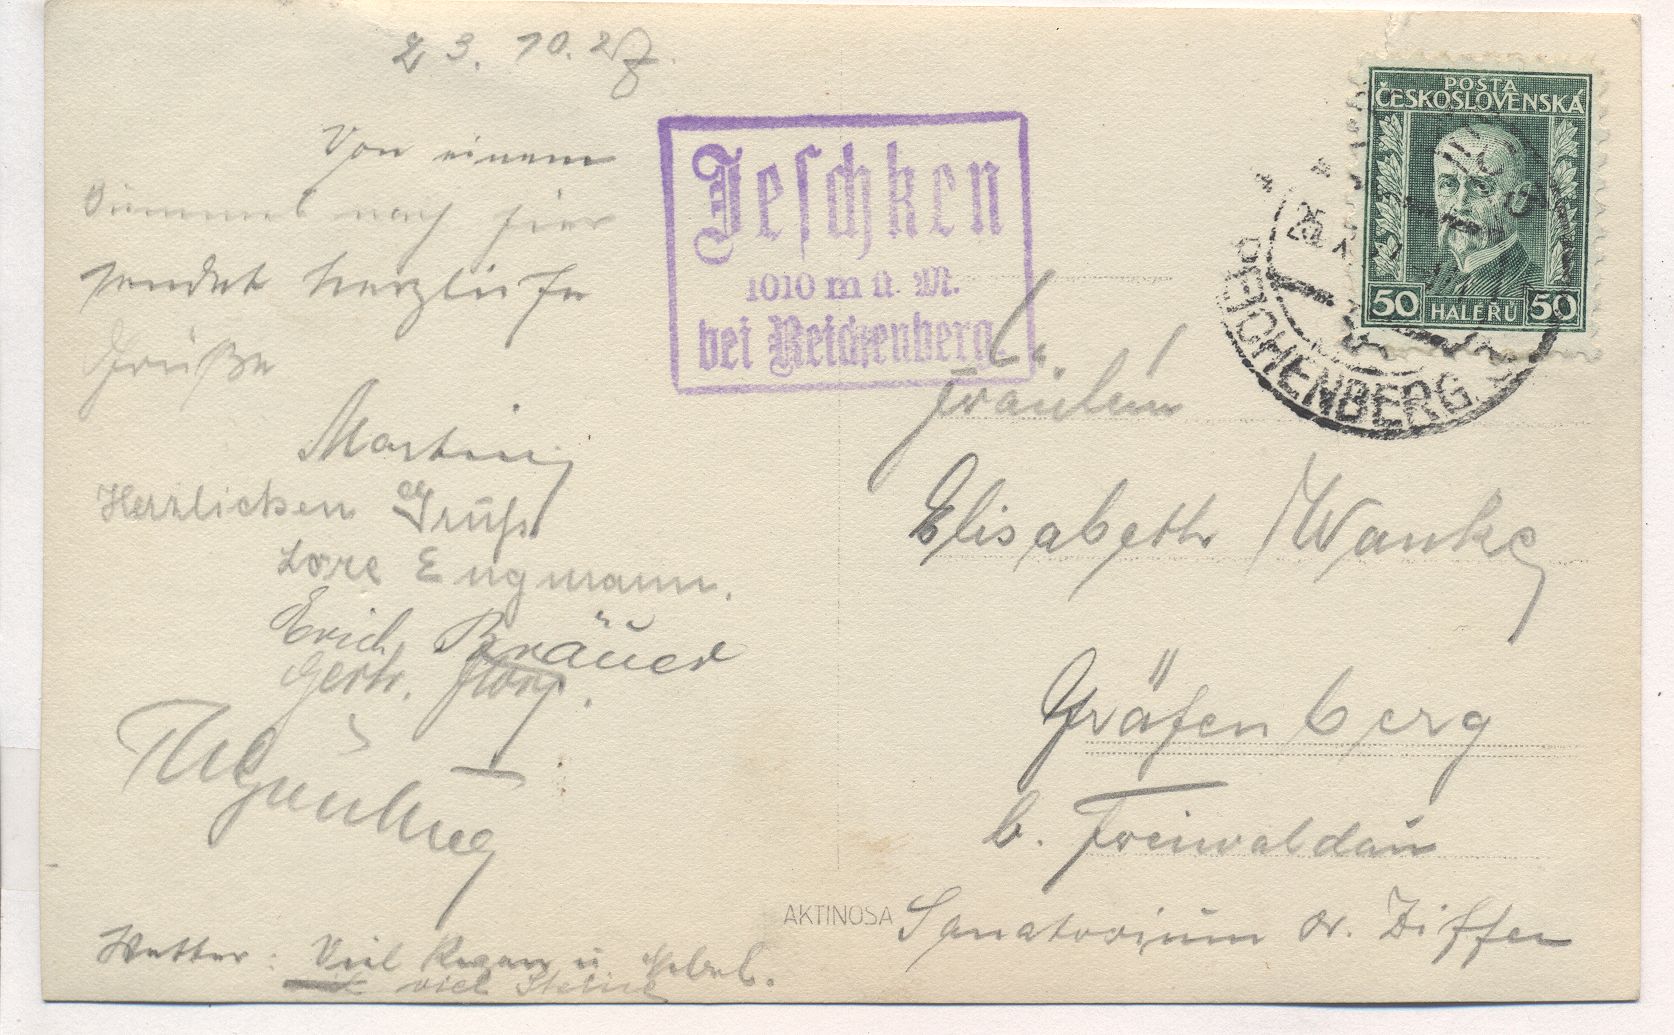 23. 10. 27.
Von einem
Bummel nach hier
sendet herzliche
Grüße
Martin
Herzlichen Gruß
Lore Engmann.
Erich Bräuer
Gertr.
Wetter: Viel Regen u. Nebel.
viel Steine
Jeschken
1010 m ü. M.
bei Reichenberg.
POSTA
ČESKOSLOVENSKÁ
50 HALERU 50
REICHENBERG
Fräulein
Elisabeth Wanke
Gräfenberg
b. Freiwaldau
Sanatorium Dr. Ziffer
AKTINOSA